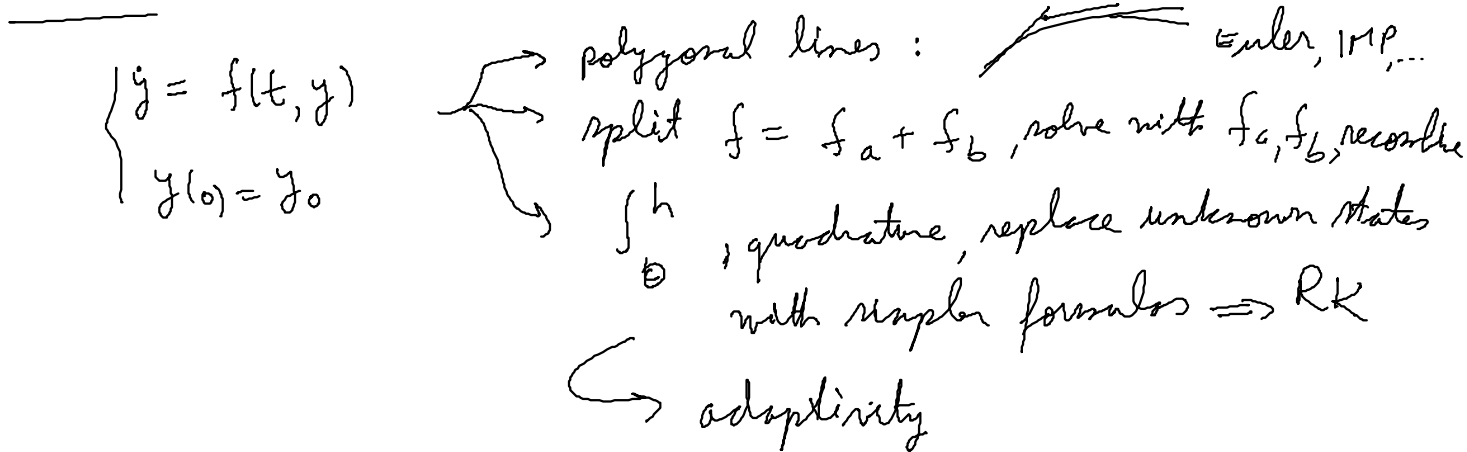 ẏ = f(t, y)
y(0) = y₀
polygonal lines : Euler, IMP, ...
split f = f_a + f_b, solve with f_a, f_b, recombine
∫₀ʰ, quadrature, replace unknown states
with simpler formulas ⇒ RK
adaptivity